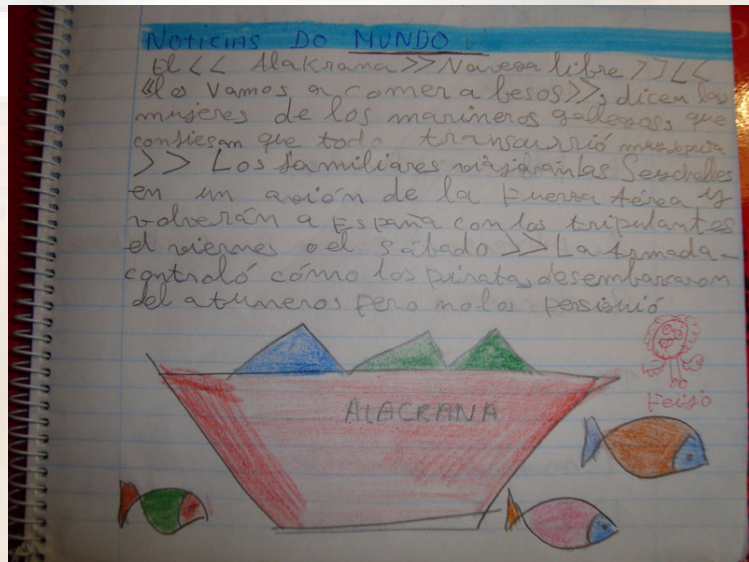 NOTICIAS DO MUNDO
El << Alakrana >> Navega libre >> <<
<<los Vamos a comer a besos>>, dicen las
mujeres de los marineros gallegos, que
confiesan que todo transcurrió
>> Los familiares viajarán las Seychelles
en un avión de la Fuerza Aérea y
volverán a España con los tripulantes
el viernes o el sábado >> La Armada
controló cómo los piratas desembarcaron
del atuneros pero no los persiguió
ALACRANA
Feijo